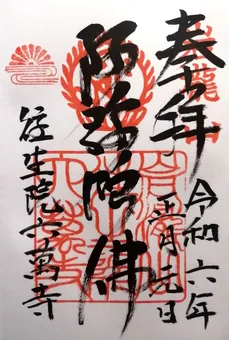 奉拝
令和六年
正月元日
阿弥陀佛
往生院六萬寺